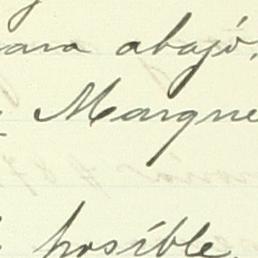 ara abajó,
Marque
posíble.